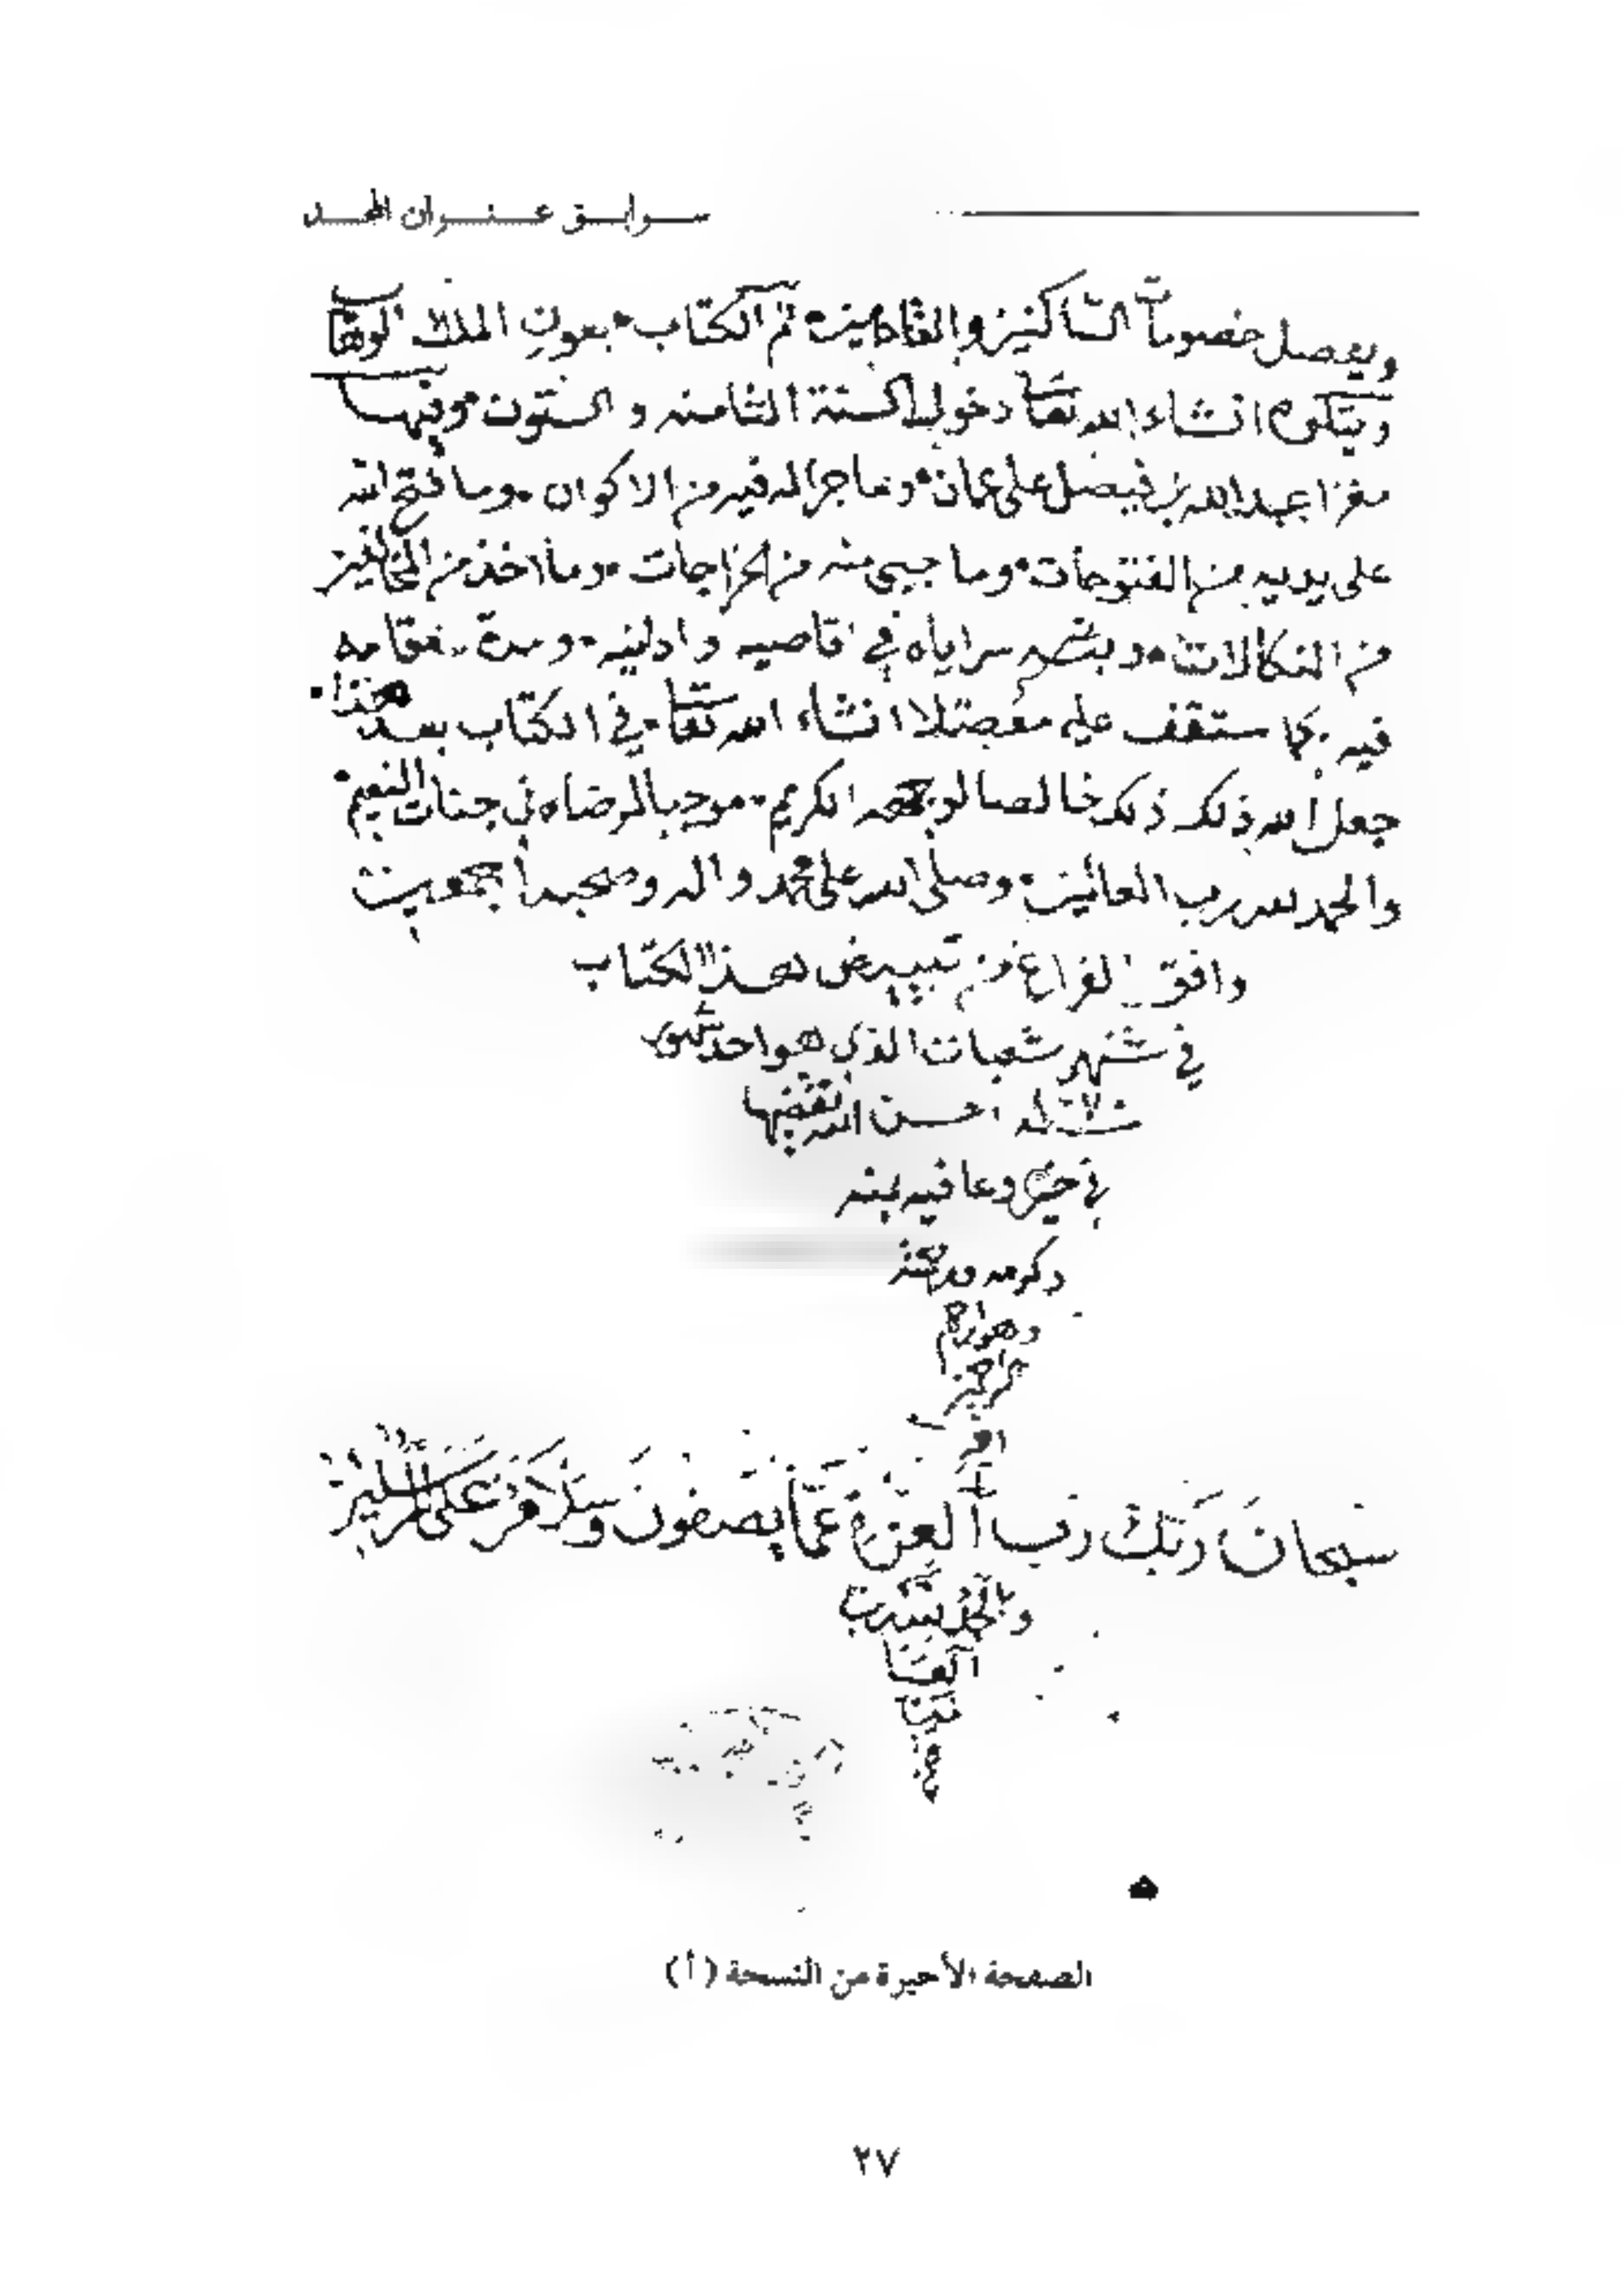 سوابق عنوان المجد
ويفصل خصومات الساكنين والقادمين تم الكتاب بعون الملك الوهاب
ويتلوه انشاء الله تعا دخول السنة الثامنه والستون وفيها
مغزا عبدالله بن فيصل على عمان وما جرا له فيه من الاكوان وما فتح الله
على يديه من الفتوحات وما جبى منه من الخراجات وما اخذ من المخالفين
من النكالات وبث سراياه في اقاصيه وادانيه ومدة مقامه
فيه كما ستقف عليه مفصلا انشاء الله تعا في الكتاب بعد هذا
جعل الله ذلك ذلك خالصا لوجهه الكريم موجبا لرضاه في جنات النعيم
والحمد لله رب العالمين وصلى الله على محمد واله وصحبه اجمعين
وافق الفراغ من تبييض هذا الكتاب
في شهر شعبان الذي هو احد شهور
احسن الله تقضيها
في خير وعافيه بمنه
وكرمه
وهو ارحم
الراحمين
امين
سبحان ربك رب العزة عما يصفون وسلام على المرسلين
والحمد لله رب
العا
لمين
الصفحة الأخيرة من النسخة (أ)
٢٧